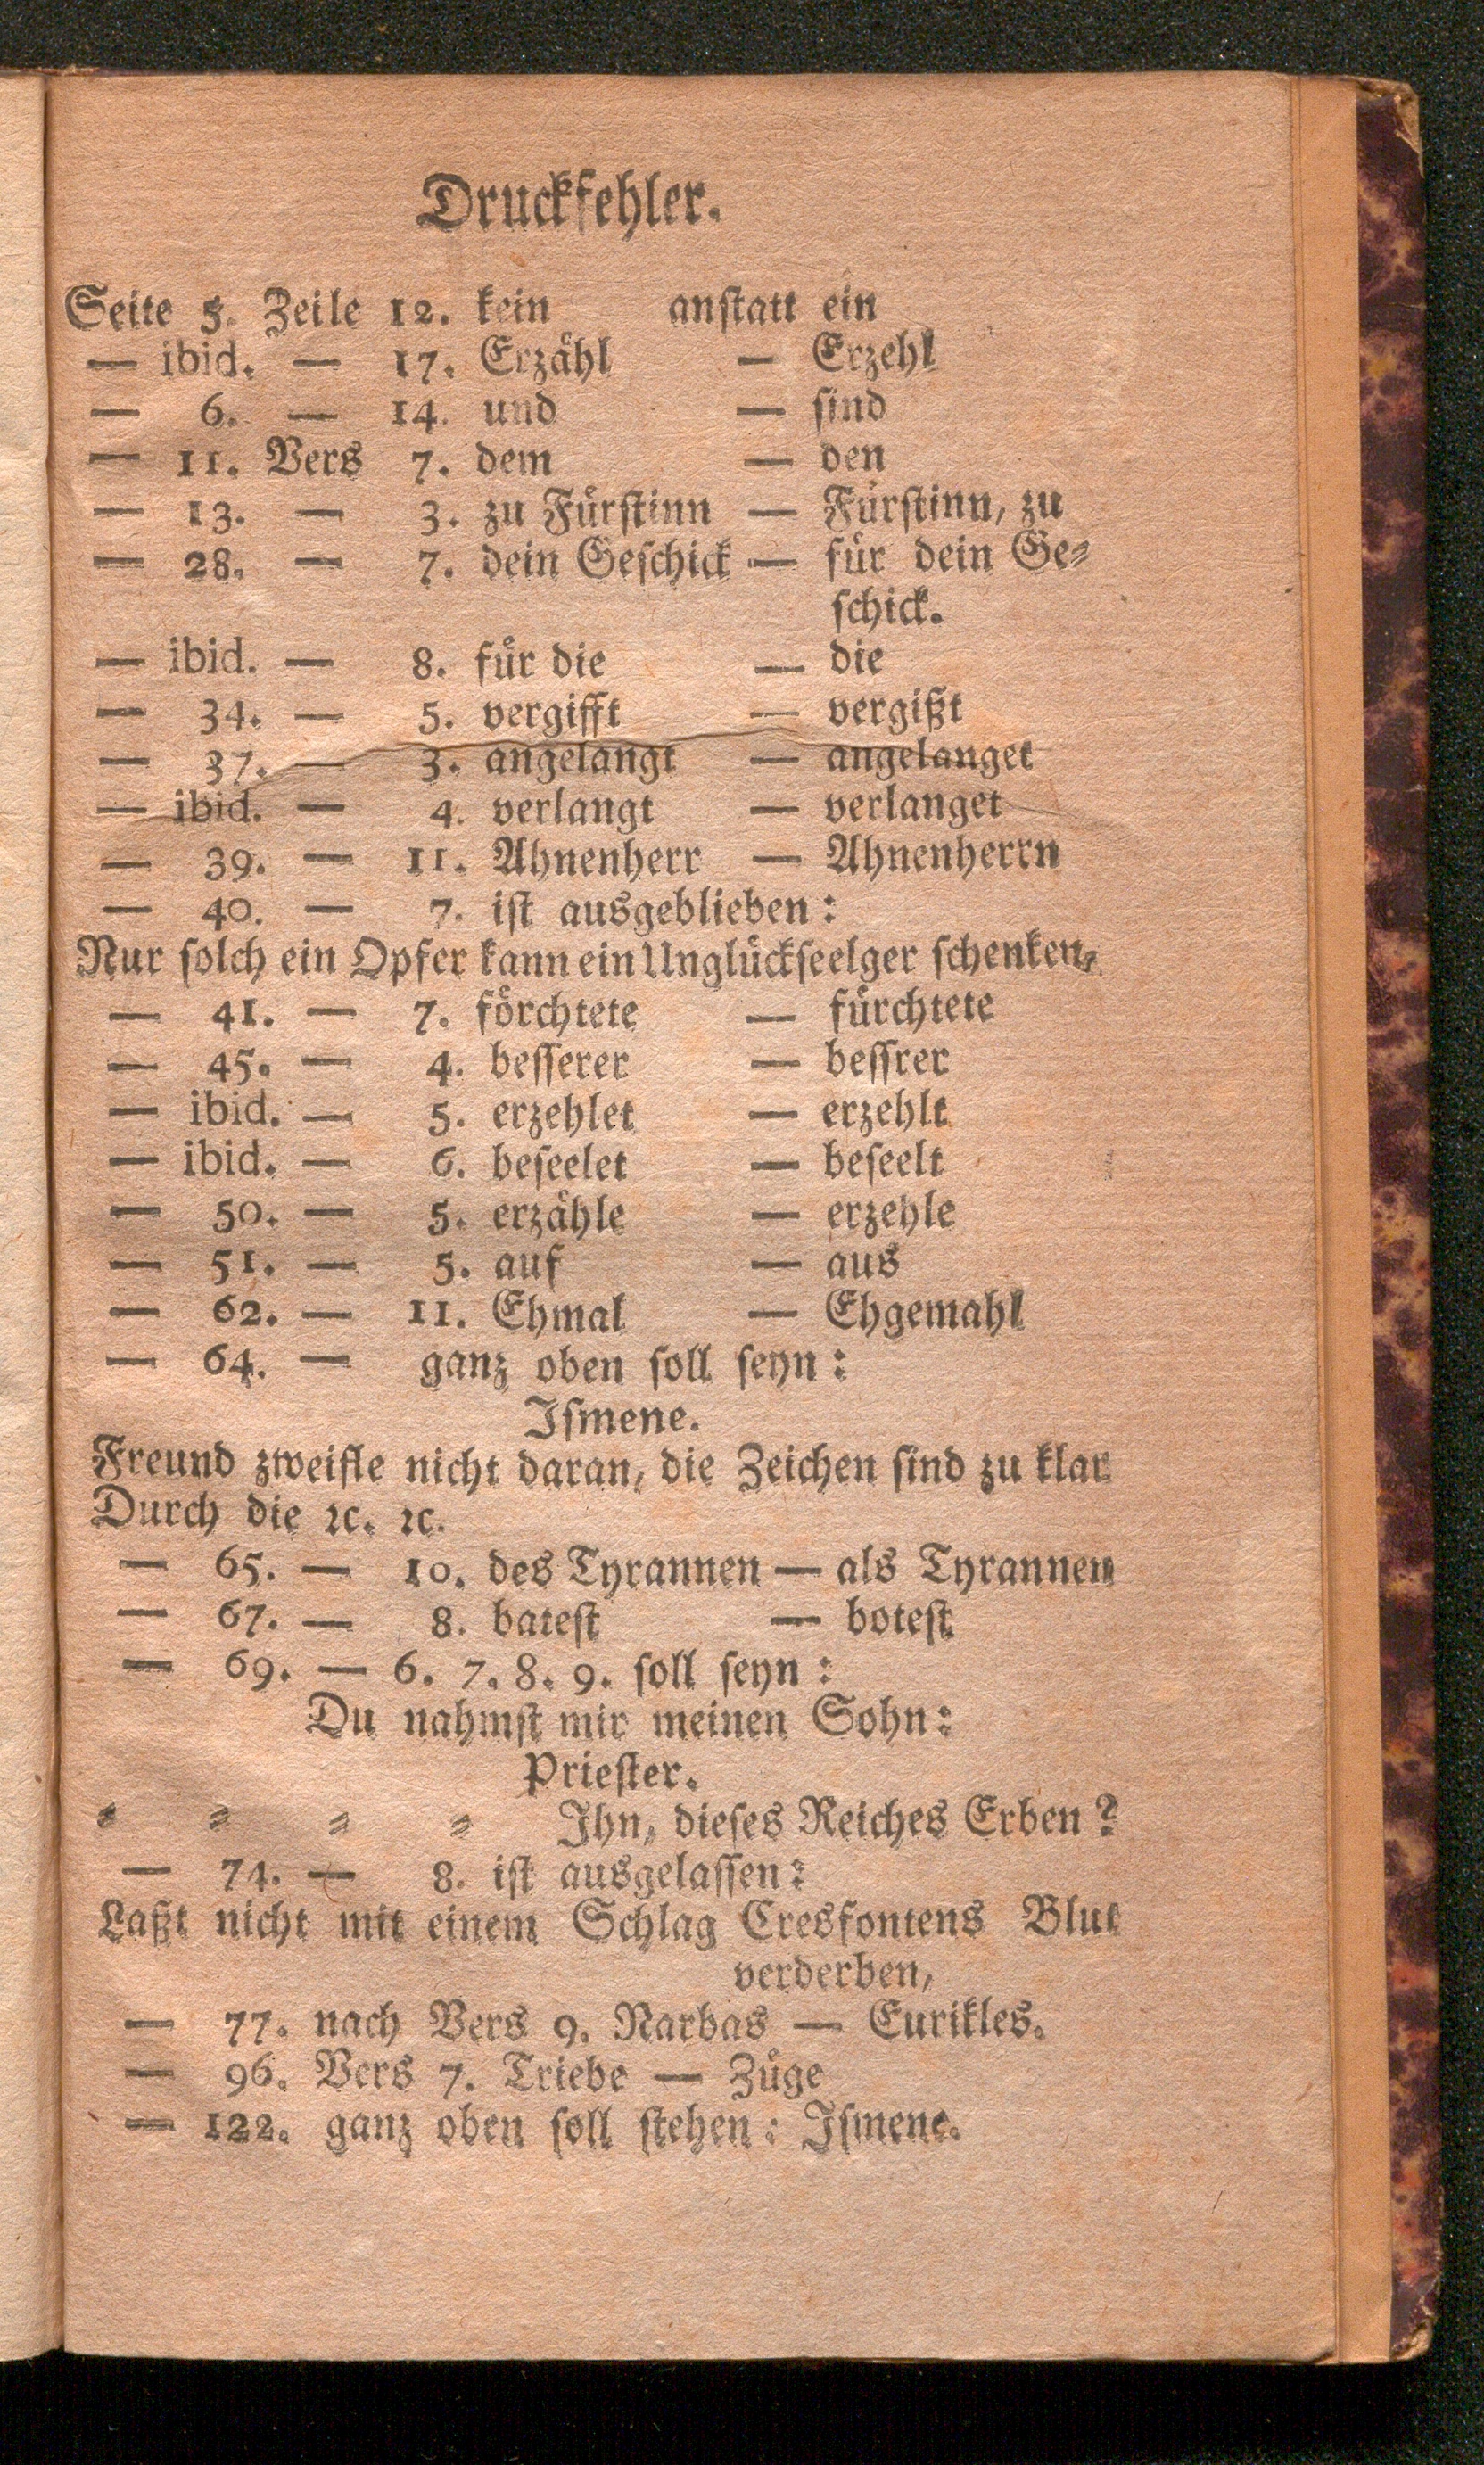 Druckfehler.
Seite 5. Zeile 12. kein anstatt ein
— ibid. — 17. Erzähl — Erzehl
— 6. — 14. und — sind
— 11. Vers 7. dem — den
— 13. — 3. zu Fürstinn — Fürstinn, zu
— 28. — 7. dein Geschick — für dein Ge⸗
schick.
— ibid. — 8. für die — die
— 34. — 5. vergifft — vergißt
— 37. — 3. angelangt — angelanget
— ibid. — 4. verlangt — verlanget
— 39. — 11. Ahnenherr — Ahnenherrn
— 40. — 7. ist ausgeblieben:
Nur solch ein Opfer kann ein Unglückseelger schenken,
— 41. — 7. förchtete — fürchtete
— 45. — 4. besserer — bessrer
— ibid. — 5. erzehlet — erzehlt
— ibid. — 6. beseelet — beseelt
— 50. — 5. erzähle — erzehle
— 51. — 5. auf — aus
— 62. — 11. Ehmal — Ehgemahl
— 64. — ganz oben soll seyn:
Ismene.
Freund zweifle nicht daran, die Zeichen sind zu klar
Durch die ꝛc. ꝛc.
— 65. — 10. des Tyrannen — als Tyrannen
— 67. — 8. batest — botest
— 69. — 6. 7. 8. 9. soll seyn:
Du nahmst mir meinen Sohn:
Priester.
⸗ ⸗ ⸗ ⸗ Ihn, dieses Reiches Erben?
— 74. — 8. ist ausgelassen:
Laßt nicht mit einem Schlag Cresfontens Blut
verderben,
— 77. nach Vers 9. Narbas — Eurikles.
— 96. Vers 7. Triebe — Züge
— 122. ganz oben soll stehen: Ismene.